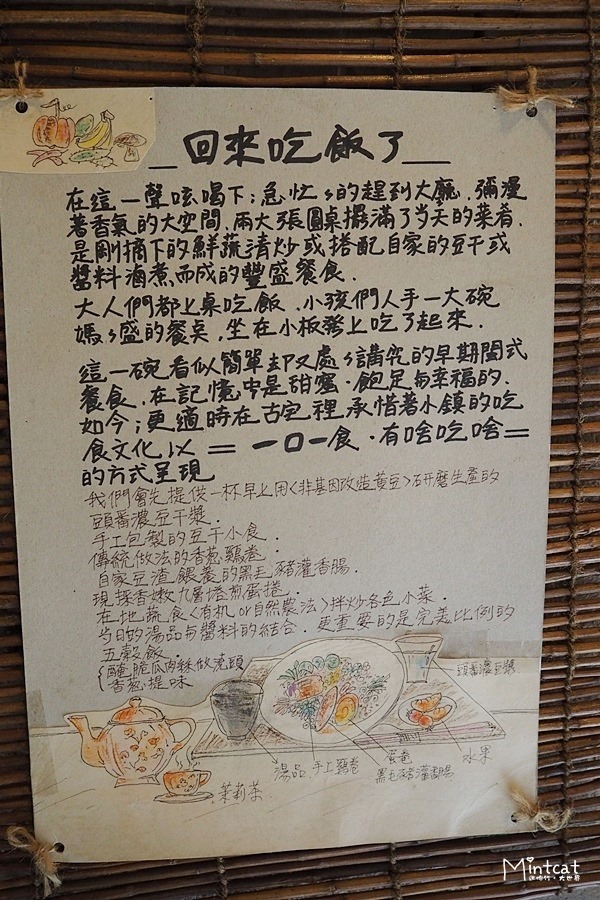 回來吃飯了
在這一聲吆喝下；急忙忙的趕到大廳．彌漫
著香氣的大空間，兩大張圓桌擺滿了當天的菜肴．
是剛摘下的鮮蔬清炒或搭配自家的豆干或
醬料滷煮而成的豐盛餐食．
大人們都上桌吃飯．小孩們人手一大碗
媽媽盛的餐桌，坐在小板凳上吃了起來．
這一碗看似簡單却又處處講究的早期閩式
餐食．在記憶中是甜蜜．飽足与幸福的．
如今；更適時在古宅裡承惜著小鎮的吃
食文化以＝一口一食．有啥吃啥＝
的方式呈現
我們會先提供一杯早上用<非基因改造黄豆>研磨生產的
頭番濃豆干漿．
手工包製的豆干小食．
傳統做法的香葱雞卷．
自家豆渣餵養的黑毛豬灌香腸．
現採香嫩九層塔煎蛋捲．
在地蔬食<有机or自然農法>拌炒各色小菜．
当日的湯品与醬料的結合．更重要的是完美比例的
五穀飯．
醃脆瓜肉燥做澆頭
香葱提味
頭番濃豆漿
湯品
手工雞卷
蛋卷
黑毛豬灌香腸
水果
茉莉茶
Mintcat